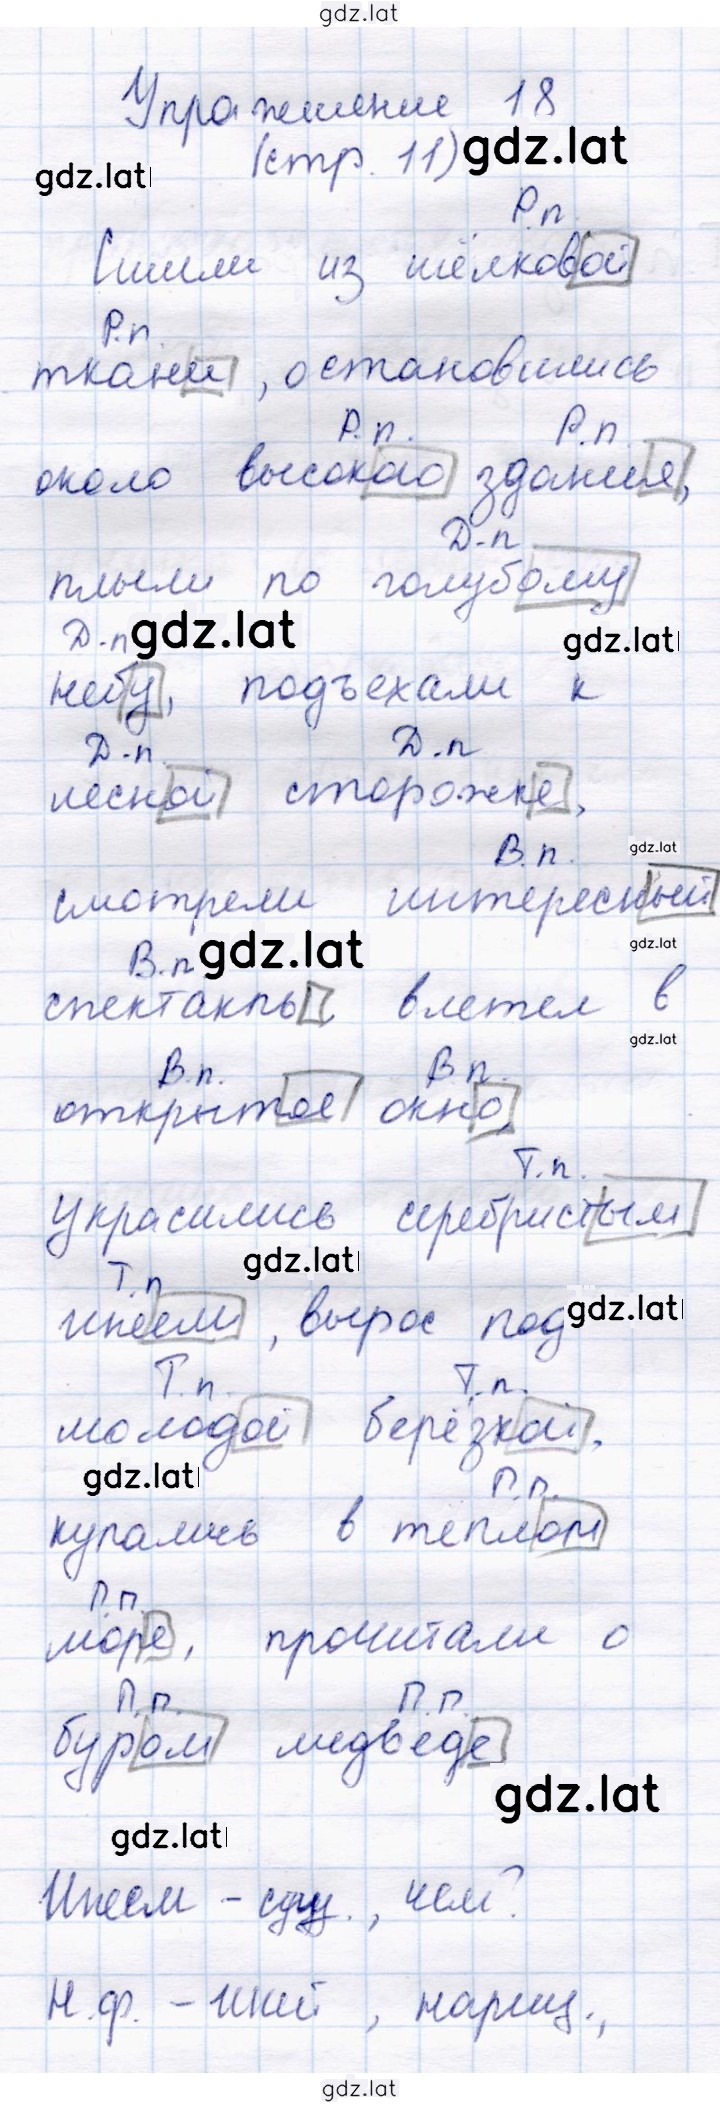 gdz.lat
Упражнение 18
(стр. 11) gdz.lat
gdz.lat
Р.п.
Сшили из шёлковой
Р.п.
ткани, остановились
Р.п. Р.п.
около высокого здания,
Д.п
плыли по голубому
Д.п gdz.lat gdz.lat
небу, подъехали к
Д.п. Д.п
лесной сторожке,
В.п. gdz.lat
смотрели интересный
В.п gdz.lat gdz.lat
спектакль, влетел в
gdz.lat
В.п. В.п.
открытое окно,
Т.п.
украсились серебристым
gdz.lat
Т.п
инеем, вырос под gdz.lat
Т.п. Т.п.
молодой берёзкой,
gdz.lat П.п.
купались в тёплом
П.п.
море, прочитали о
П.п. П.п.
буром медведе
gdz.lat
gdz.lat
Инеем - сущ., чем?
Н.ф. - иней, нариц.,
gdz.lat